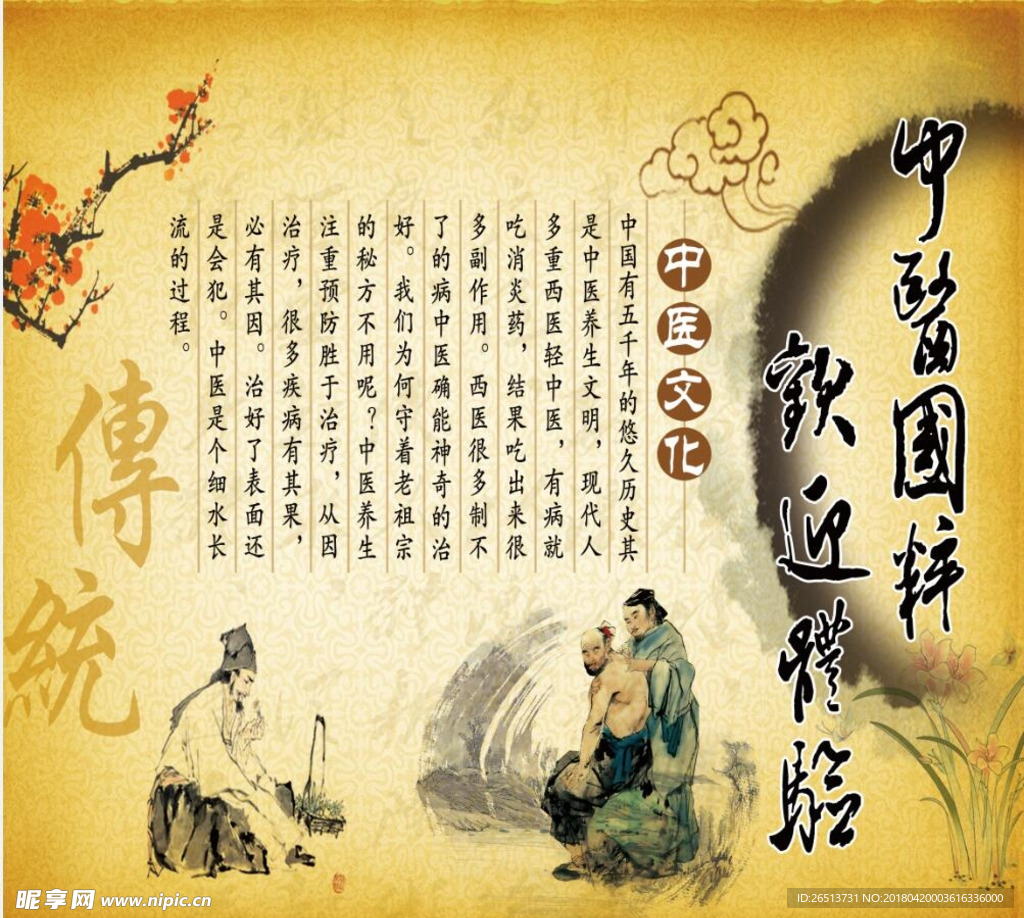 中醫國粹
歡迎體驗
中医文化
中国有五千年的悠久历史其
是中医养生文明，现代人
多重西医轻中医，有病就
吃消炎药，结果吃出来很
多副作用。西医很多制不
了的病中医确能神奇的治
好。我们为何守着老祖宗
的秘方不用呢？中医养生
注重预防胜于治疗，从因
治疗，很多疾病有其果，
必有其因。治好了表面还
是会犯。中医是个细水长
流的过程。
傳統
昵享网 www.nipic.cn
ID:26513731 NO:20180420003616336000